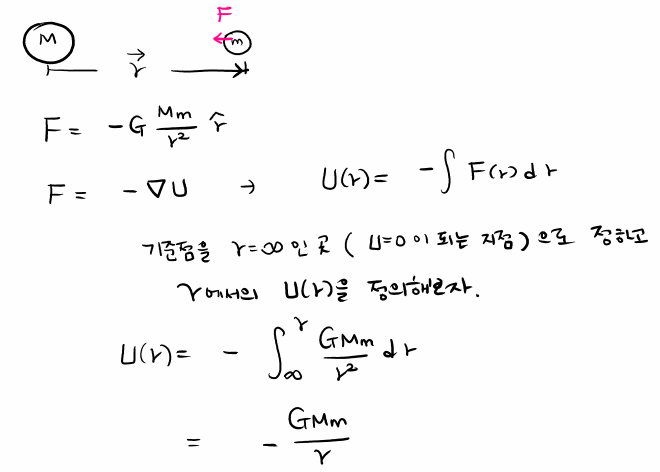 F
M m
r⃗
F = -G Mm/r² r̂
F = -∇U → U(r) = -∫ F(r) dr
기준점을 r=∞인 곳 ( U=0이 되는 지점 ) 으로 정하고
r에서의 U(r)을 정의해보자.
U(r) = - ∫_∞^r GMm/r² dr
= - GMm/r